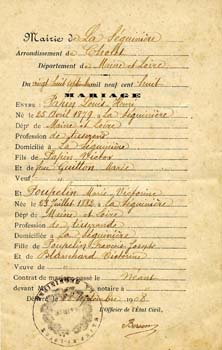 Mairie de La Séguinière
Arrondissement de Cholet
Département de Maine et Loire
Du vingt huit septembre mil neuf cent huit
MARIAGE
ENTRE Papin Louis Henri
Né le 25 Avril 1879 à la Séguinière
Dépt de Maine et Loire
Profession de tisserand
Domicilié à La Séguinière
Fils de Papin Victor
Et de feue Guitton Marie
Veuf
Et Poupelin Marie Victorine
Née le 23 Juillet 1882 à la Séguinière
Dépt de Maine et Loire
Profession de tisserande
Domiciliée à La Séguinière
Fille de Poupelin François Joseph
Et de Blanchard Victorine
Veuve de
Contrat de mariage passé le Néant
devant Me notaire à
Délivré le septembre 1908
L'Officier de l'État Civil,